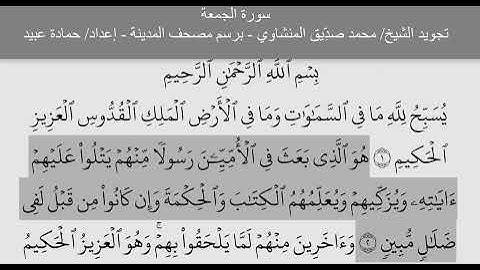 سورة الجمعة
تجويد الشيخ/ محمد صدّيق المنشاوي - برسم مصحف المدينة - إعداد/ حمادة عبيد
بِسْمِ ٱللَّهِ ٱلرَّحْمَٰنِ ٱلرَّحِيمِ
يُسَبِّحُ لِلَّهِ مَا فِي ٱلسَّمَٰوَٰتِ وَمَا فِي ٱلْأَرْضِ ٱلْمَلِكِ ٱلْقُدُّوسِ ٱلْعَزِيزِ
ٱلْحَكِيمِ ١ هُوَ ٱلَّذِي بَعَثَ فِي ٱلْأُمِّيِّـۧنَ رَسُولًا مِّنْهُمْ يَتْلُوا۟ عَلَيْهِمْ
ءَايَٰتِهِۦ وَيُزَكِّيهِمْ وَيُعَلِّمُهُمُ ٱلْكِتَٰبَ وَٱلْحِكْمَةَ وَإِن كَانُوا۟ مِن قَبْلُ لَفِي
ضَلَٰلٍ مُّبِينٍ ٢ وَءَاخَرِينَ مِنْهُمْ لَمَّا يَلْحَقُوا۟ بِهِمْ ۚ وَهُوَ ٱلْعَزِيزُ ٱلْحَكِيمُ